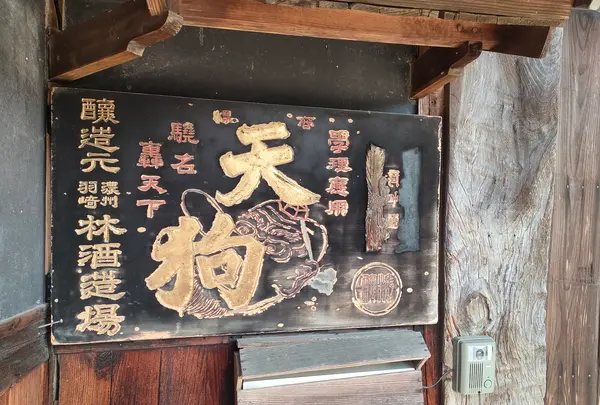 學理應用
天狗
驍名
轟天下
釀造元
濃州
羽崎
林酒造場